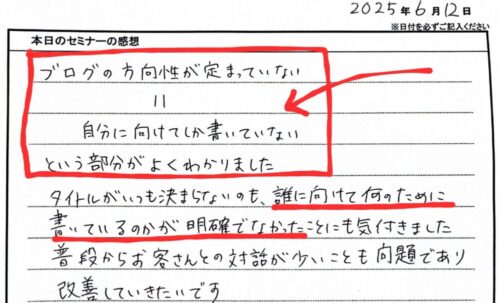 2025年6月12日
※日付を必ずご記入ください
本日のセミナーの感想
ブログの方向性が定まっていない
=
自分に向けてしか書いていない
という部分がよくわかりました
タイトルがいつも決まらないのも、誰に向けて何のために
書いているのかが明確でなかったことにも気付きました
普段からお客さんとの対話が少いことも問題であり
改善していきたいです